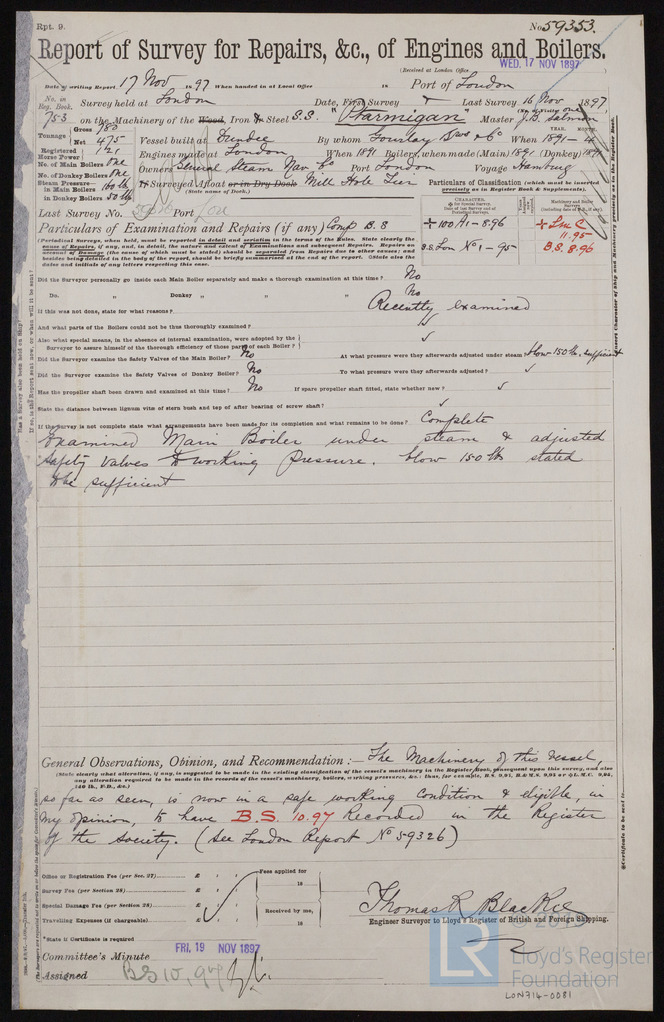 Rpt. 9.
No 59353.
Report of Survey for Repairs, &c., of Engines and Boilers.
(Received at London Office WED. 17 NOV 1897
Date of writing Report 17 Nov 1897 When handed in at Local Office 18 Port of London
No. in Reg. Book. Survey held at London Date, First Survey Last Survey 16 Nov 1897
(No. of Visits one)
753 on the Machinery of the Wood, Iron & Steel S.S. "Ptarmigan" Master J.B. Salmon
Tonnage Gross 780
Net 475
Vessel built at Dundee By whom Gourlay Bros & Co When 1891-4
YEAR. MONTH.
Registered Horse Power 121
Engines made at London When 1891 Boilers, when made (Main) 1891 (Donkey) 1891
No. of Main Boilers One
Owners General Steam Nav Co Port London Voyage Hamburg
No. of Donkey Boilers One
Steam Pressure in Main Boilers 160 lb
in Donkey Boilers 50 lb
If Surveyed Afloat or in Dry Dock Mill Hole Tier
(State name of Dock.)
Particulars of Classification (which must be inserted precisely as in Register Book & Supplements).
Last Survey No. Port Lon
+ 100 A1-8.96
B.S. Lon No 1-95
+ LMC 11.95
B.S. 8.96
Particulars of Examination and Repairs (if any) Comp B.S
(Periodical Surveys, when held, must be reported in detail and seriatim in the terms of the Rules. State clearly the cause of Repairs, if any, and, in detail, the nature and extent of Examinations and subsequent Repairs. Repairs on account of Damage (the cause of which must be stated) should be separated from Repairs due to other causes; and besides being detailed in the body of the report, should be briefly summarised at the end of the report. State also the dates and initials of any letters respecting this case.
Did the Surveyor personally go inside each Main Boiler separately and make a thorough examination at this time? No
Do. " Donkey " " " No
If this was not done, state for what reasons? Recently examined
And what parts of the Boilers could not be thus thoroughly examined?
Also what special means, in the absence of internal examination, were adopted by the Surveyor to assure himself of the thorough efficiency of those parts of each Boiler?
Did the Surveyor examine the Safety Valves of the Main Boiler? No At what pressure were they afterwards adjusted under steam blow 150 lb. sufficient
Did the Surveyor examine the Safety Valves of Donkey Boiler? No To what pressure were they afterwards adjusted?
Has the propeller shaft been drawn and examined at this time? No If spare propeller shaft fitted, state whether new?
State the distance between lignum vitæ of stern bush and top of after bearing of screw shaft?
If the Survey is not complete state what arrangements have been made for its completion and what remains to be done? Complete
Examined Main Boiler under steam & adjusted
safety valves to working pressure. blow 150 lbs stated
to be sufficient
General Observations, Opinion, and Recommendation:— The Machinery of this vessel,
(State clearly what alteration, if any, is suggested to be made in the existing classification of the vessel's machinery in the Register Book, consequent upon this survey, and also any alteration required to be made in the records of the vessel's machinery, boilers, working pressures, &c.: thus, for example, B.S. 9,91, B.&M.S. 9,95 or L.M.C. 9,95,
so far as seen, is now in a safe working condition & eligible, in
my opinion, to have B.S. 10.97 Recorded in the Register
of the Society. (See London Report No 59326)
Office or Registration Fee (per Sec. 27) £ : :
Survey Fee (per Section 28) £ : :
Special Damage Fee (per Section 28) £ : :
Travelling Expenses (if chargeable) £ : :
Fees applied for
18
Received by me,
18
Thomas R Blackie
Engineer Surveyor to Lloyd's Register of British and Foreign Shipping.
*State if Certificate is required
Committee's Minute FRI. 19 NOV 1897
Assigned
LR
Lloyd's Register
Foundation
LON714-0081